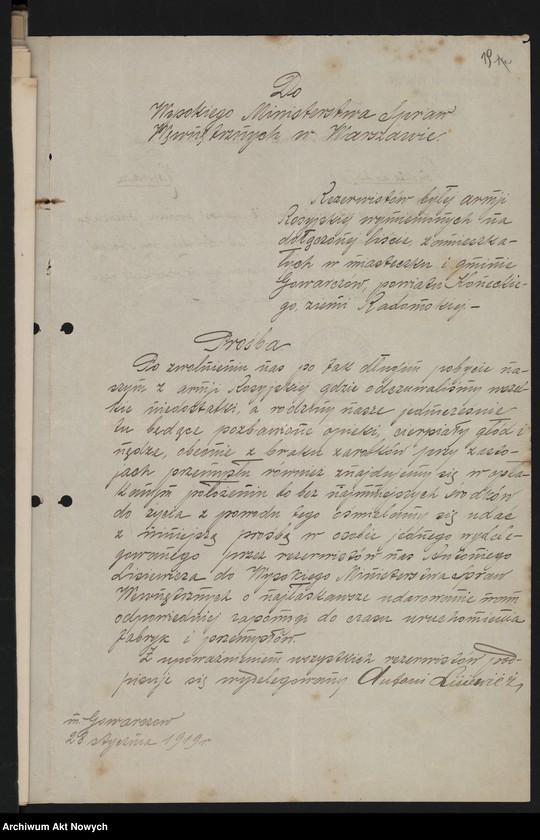 19
Do
Wysokiego Ministerstwa Spraw
Wewnętrznych w Warszawie.
Rezerwistów byłej armji
Rosyjskiej wymienionych na
dołączonej liście, zamieszka-
łych w miasteczku i gminie
Gowarczow, powiatu Koneckie-
go, ziemi Radomskiej –
Prośba
Po zwolnieniu nas po tak długim pobycie na-
szym z armji Rosyjskiej gdzie odczuwaliśmy wszel-
kie niedostatki, a rodziny nasze jednocześnie
tu będące pozbawione opieki, cierpiały głód i
nędze, obecnie z braku zarobków przy zasto-
jach przemysłu również znajdujemy się w opła-
kanym położeniu bo bez najmniejszych środków
do życia z powodu tego ośmielamy się udać
z niniejszą prośbą w osobie jednego wydele-
gowanego przez rezerwistów nas Antoniego
Lisiewicza do Wysokiego Ministerstwa Spraw
Wewnętrznych o najłaskawsze udarowanie nam
odpowiedniej zapomogi do czasu uruchomienia
fabryk i przemysłów
Z upoważnieniem wszystkich rezerwistów pod-
pisuje się wydelegowany Antoni Lisiewicz,
m. Gowarczow
28 stycznia 1919 r.
Archiwum Akt Nowych